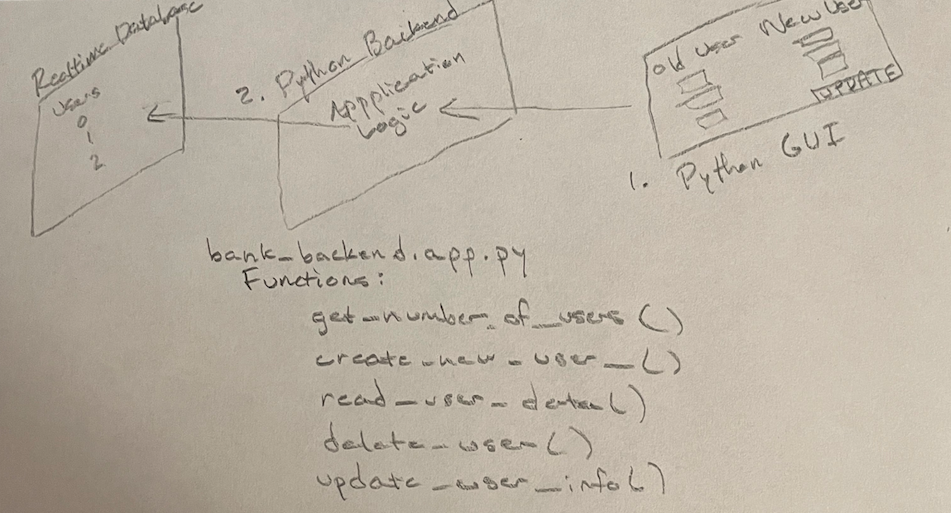 Realtime Database
Users
0
1
2
2. Python Backend
Appplication
Logic
Old User New User
UPDATE
1. Python GUI
bank_backend.app.py
Functions:
get_number_of_users()
create_new_user_()
read_user_data()
delete_user()
update_user_info()